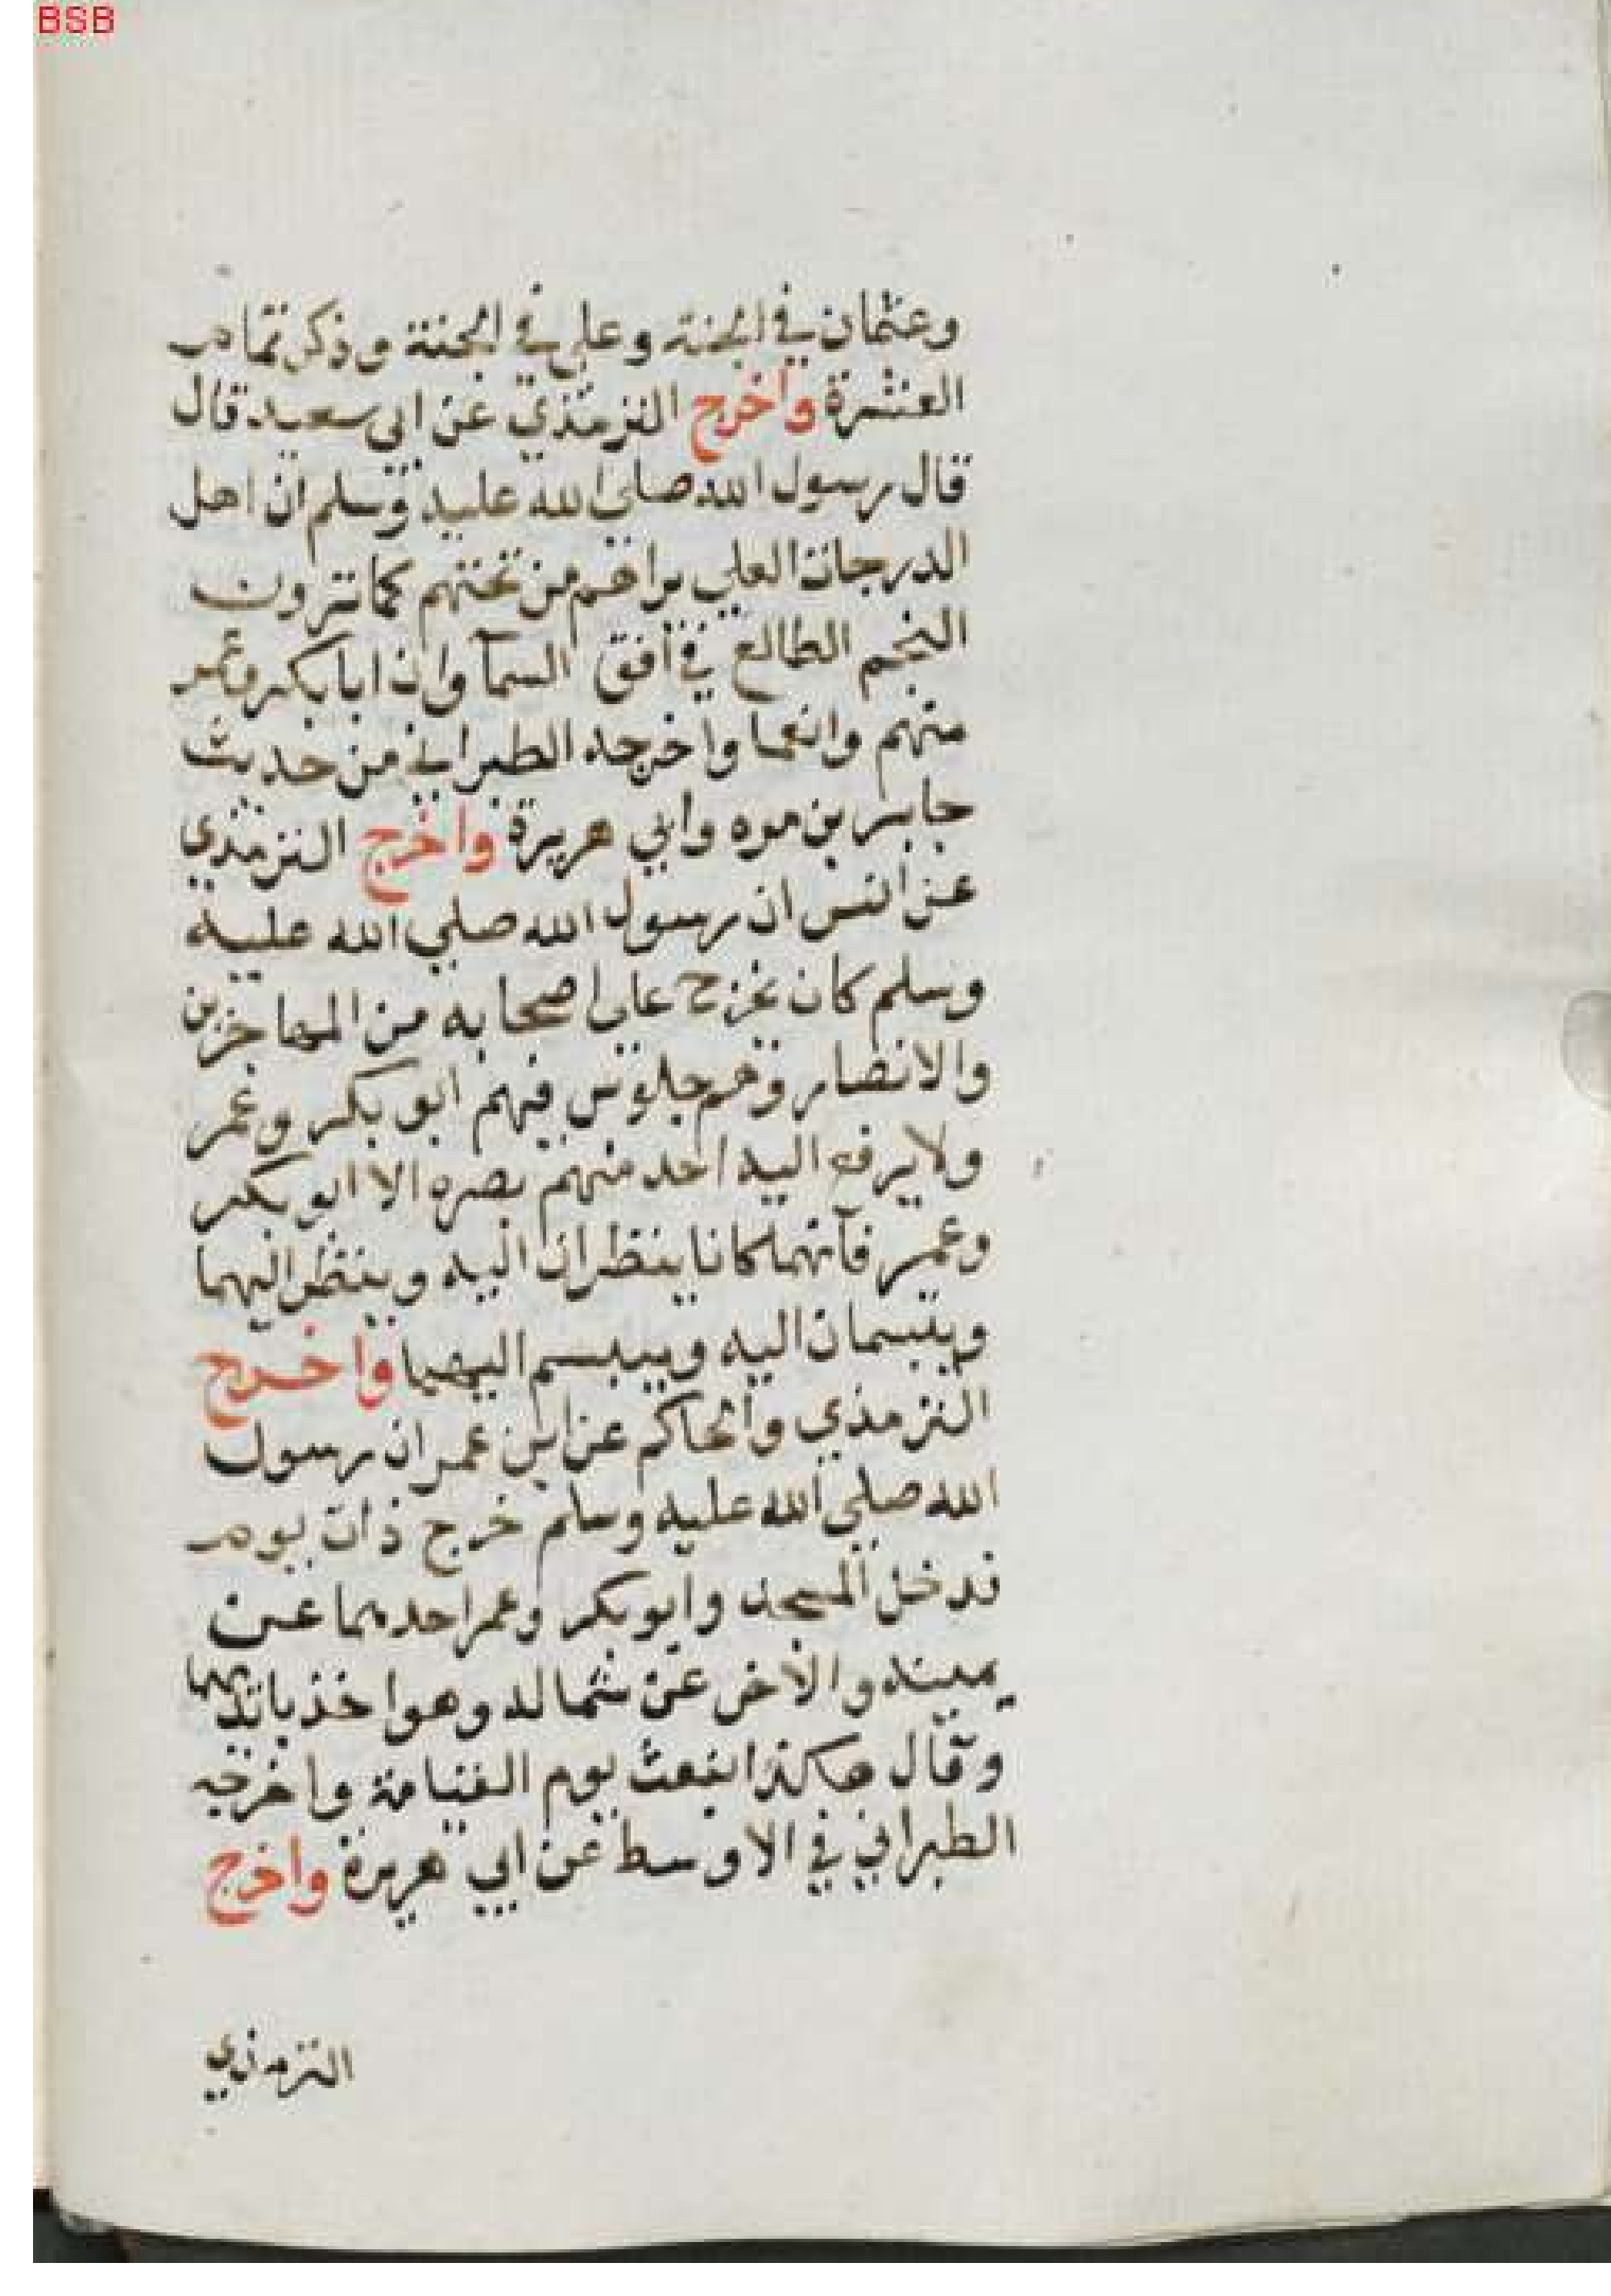 BSB
وعثمان في الجنة وعلي في الجنة وذكر تمام
العشرة واخرج الترمذي عن ابي سعيد قال
قال رسول الله صلي الله عليه وسلم ان اهل
الدرجات العلي يراهم من تحتهم كما ترون
النجم الطالع في افق السمآ وان ابا بكر وعمر
منهم وانعما واخرجه الطبراني من حديث
جابر بن موه وابي هريرة واخرج الترمذي
عن انس ان رسول الله صلي الله عليه
وسلم كان يخرج علي اصحابه من المهاجرين
والانصار وهم جلوس فيهم ابو بكر وعمر
ولا يرفع اليه احد منهم بصره الا ابو بكر
وعمر فانهما كانا ينظران اليه وينظر اليهما
ويتبسمان اليه ويتبسم اليهما واخرج
الترمذي والحاكم عن ابن عمر ان رسول
الله صلي الله عليه وسلم خرج ذات يوم
فدخل المسجد وابو بكر وعمر احدهما عن
يمينه والاخر عن شماله وهو اخذ بايديهما
وقال هكذا نبعث يوم القيامة واخرجه
الطبراني في الاوسط عن ابي هريرة واخرج
الترمذي